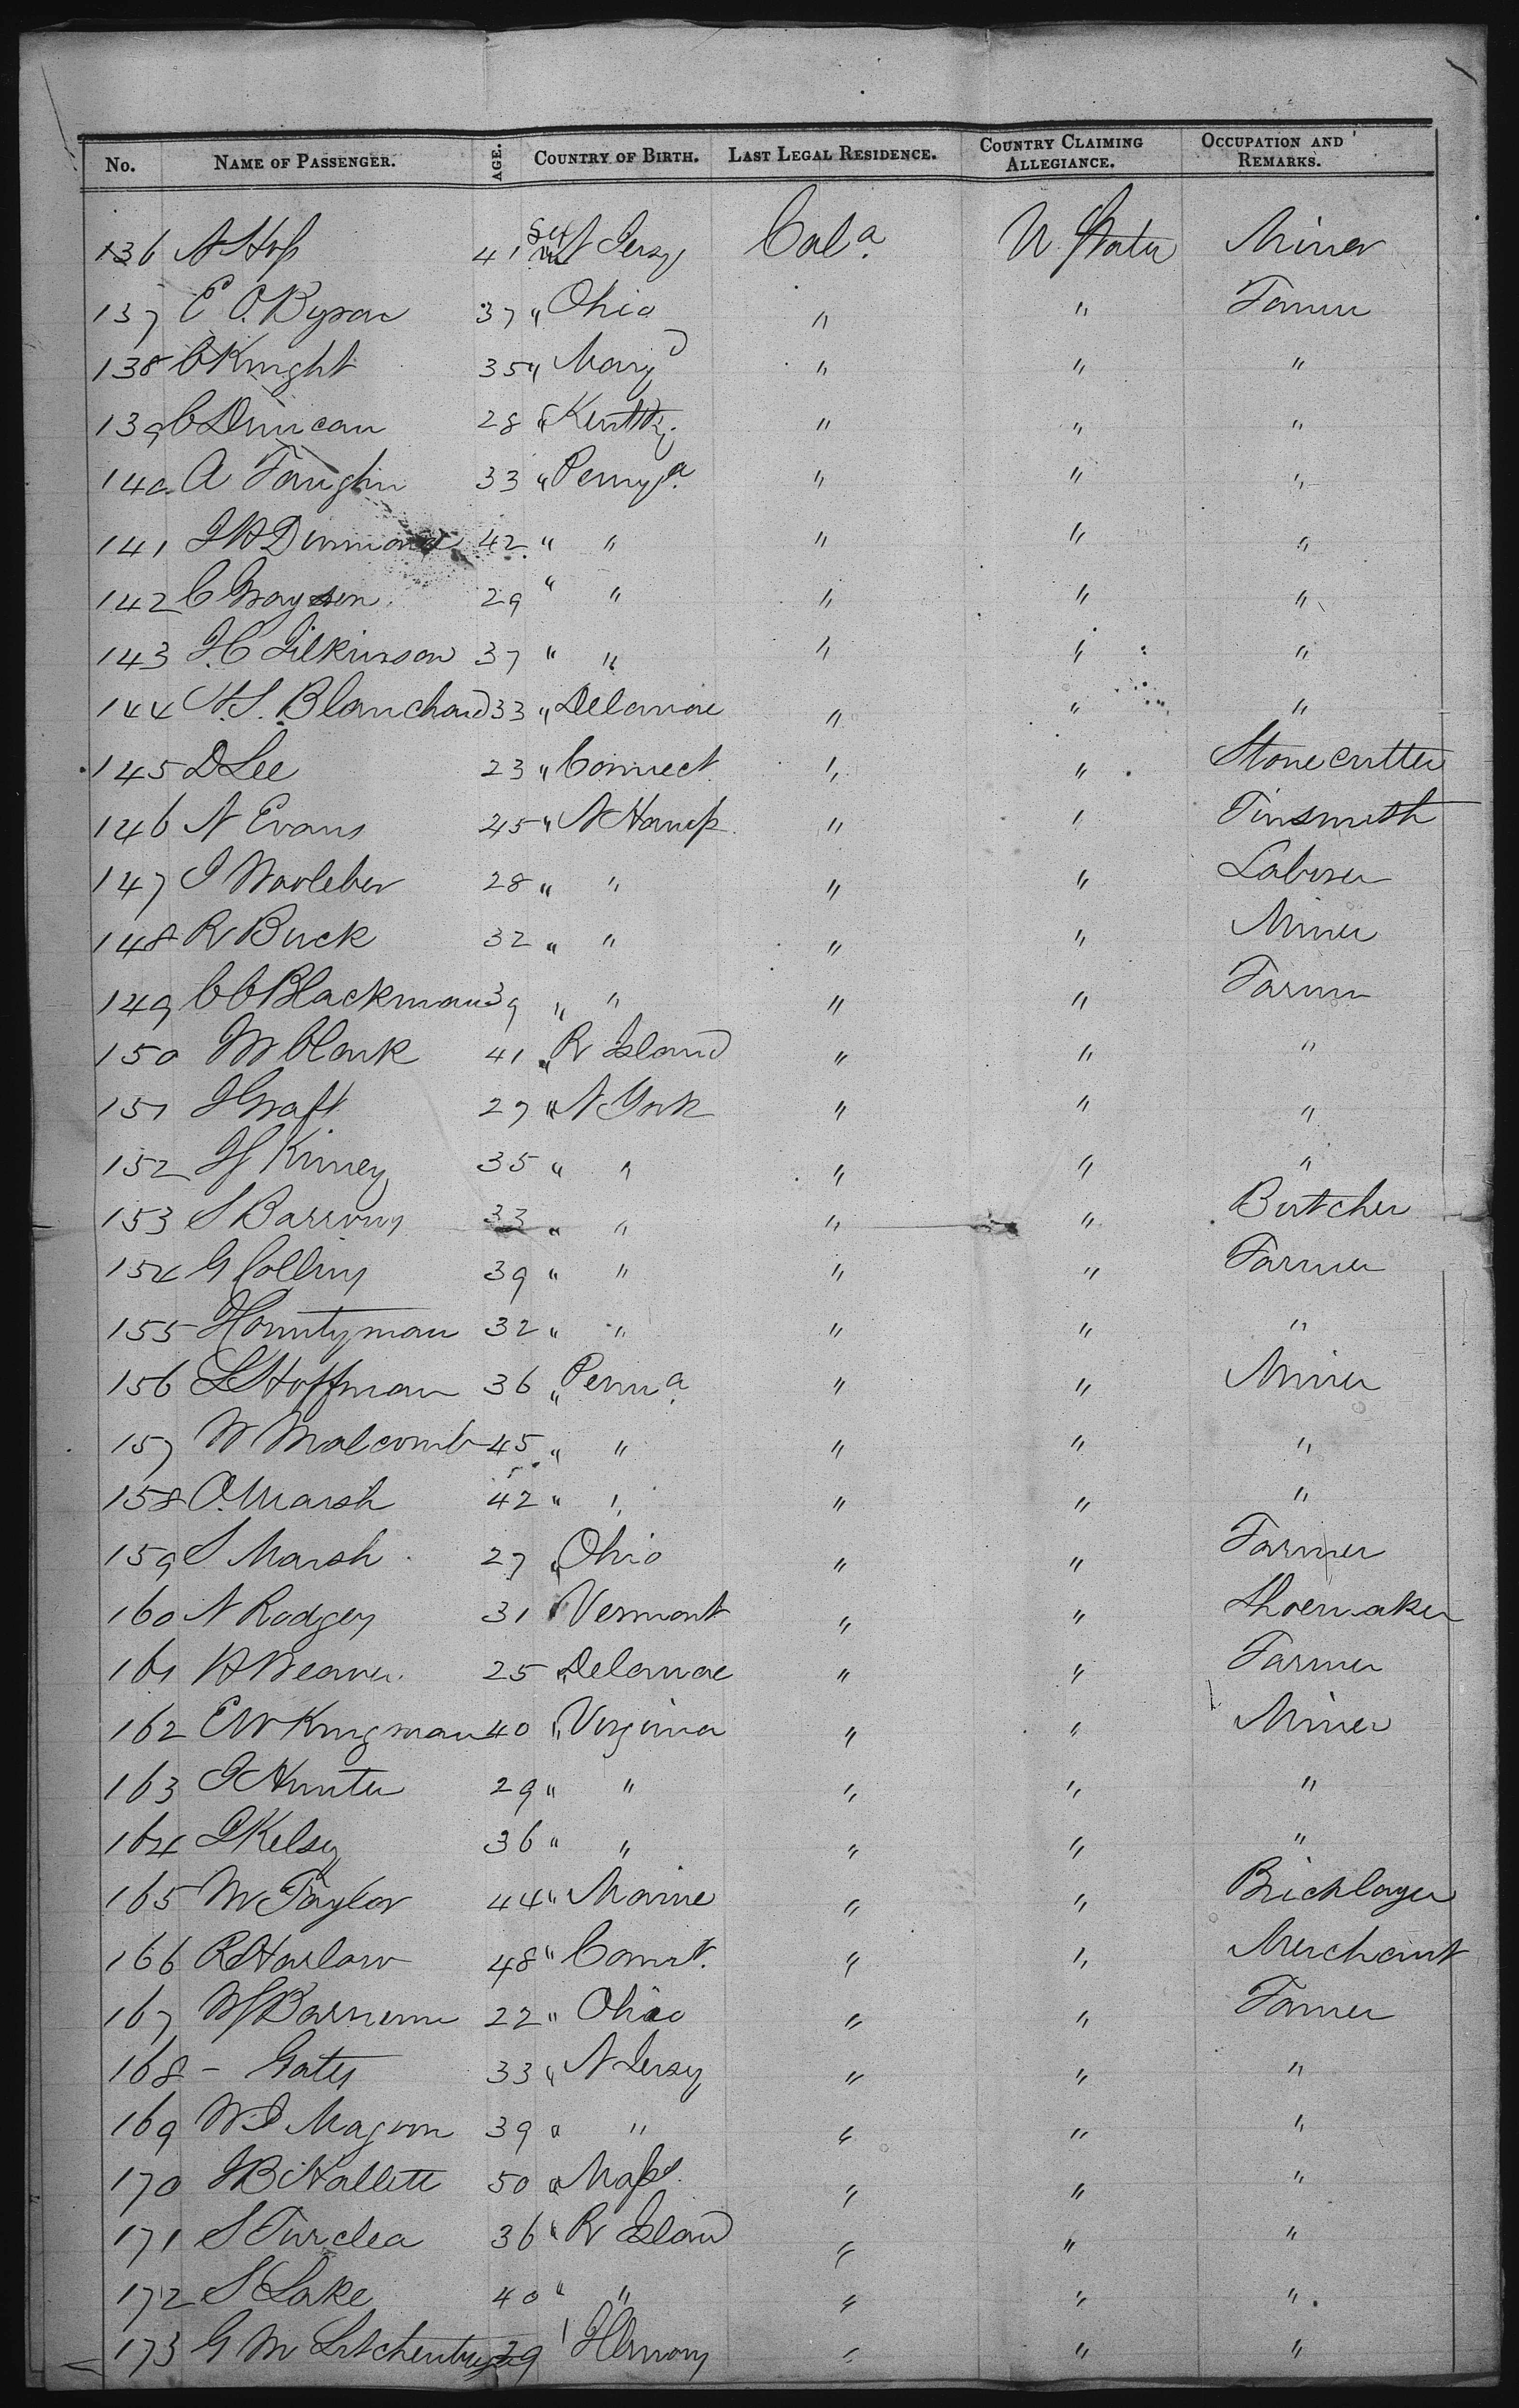 No. NAME OF PASSENGER. AGE. COUNTRY OF BIRTH. LAST LEGAL RESIDENCE. COUNTRY CLAIMING ALLEGIANCE. OCCUPATION AND REMARKS.
136 N Hop 41 N Jersy Cala. U States Miner
137 E O. Byron 37 " Ohio " " Farmer
138 C Knight 35 " Maryd " " "
139 C Duncan 28 " Kentky " " "
140 A Faughn 33 " Pennya. " " "
141 J H Dinmond 42 " " " " "
142 C Grayson 29 " " " " "
143 J.C Gilkinson 37 " " " " "
144 N.S. Blanchard 33 " Delaware " " "
145 D Lee 23 " Connect. " " Stonecutter
146 N Evans 45 " N Hamp. " " Tinsmith
147 J Warleber 28 " " " " Laborer
148 R Buck 32 " " " " Miner
149 C C Blackman 39 " " " " Farmer
150 J W Clark 41 " R Island " " "
151 J Graft 27 " N York " " "
152 H Kinney 35 " " " " "
153 S Barrows 33 " " " " Butcher
154 G Collins 39 " " " " Farmer
155 Hountyman 32 " " " " "
156 L Hoffman 36 " Penna. " " Miner
157 W Malcomb 45 " " " " "
158 O. Marsh 42 " " " " "
159 S Marsh 27 " Ohio " " Farmer
160 N Rodgers 31 " Vermont " " Shoemaker
161 H Weaver. 25 " Delaware " " Farmer
162 E W Kingman 40 " Virginia " " Miner
163 J Hunter 29 " " " " "
164 L Kelsey 36 " " " " "
165 W Taylor 44 " Maine " " Bricklayer
166 R Harlow 48 " Connt. " " Merchant
167 W S Barnum 22 " Ohio " " Farmer
168 - Gates 33 " N Jersy " " "
169 W J Magoon 39 " " " " "
170 J B Hallett 50 " Mass. " " "
171 S Turclea 36 " R Island " " "
172 S Lake 40 " " " " "
173 G M 29 " " "